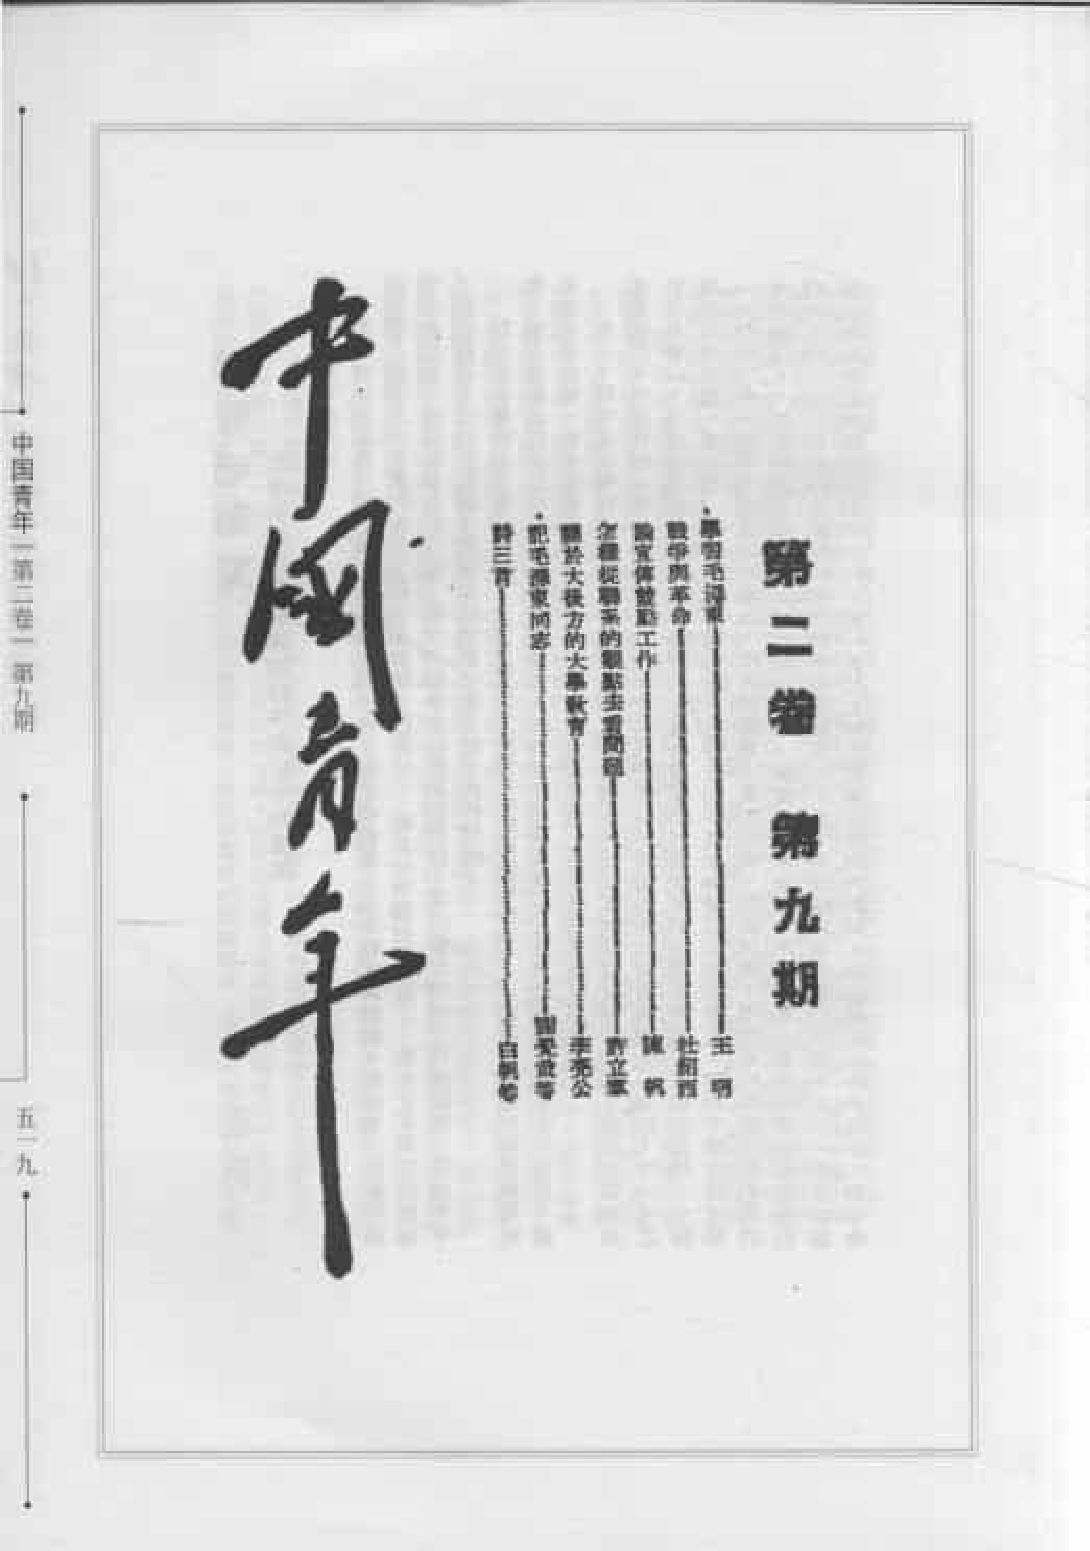 第二卷 第九期
學習毛澤東 王明
戰爭與革命 杜紹西
論宣傳鼓動工作 陳帆
怎樣從聯系的觀點去看問題 許立羣
關於大後方的大學教育 李亮公
記毛澤東同志 等
詩三首 白帆等
中國青年
中国青年 第二卷 第九期
五一九